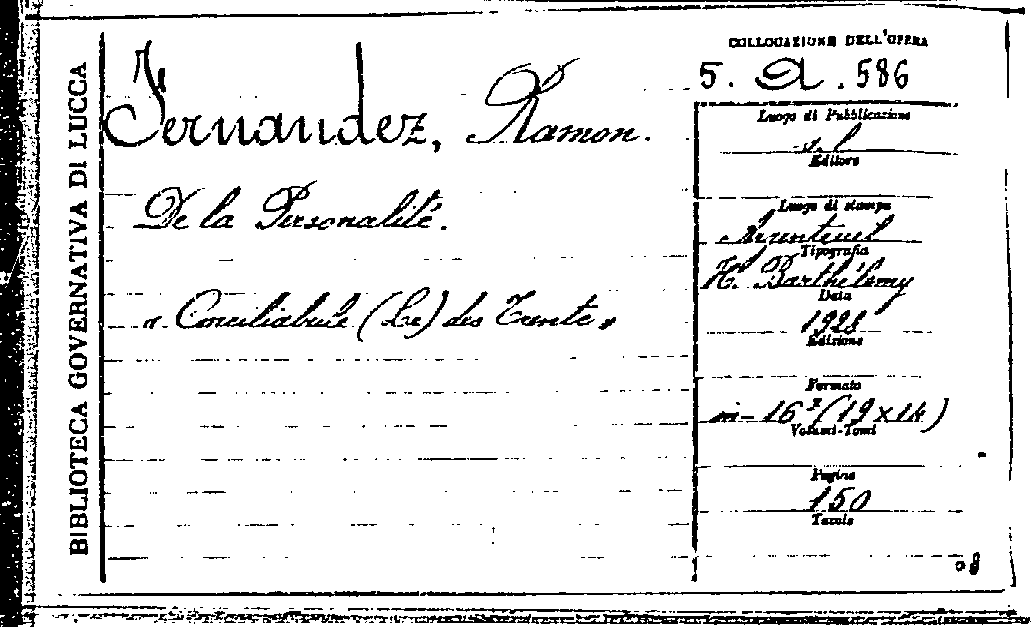 BIBLIOTECA GOVERNATIVA DI LUCCA
Fernandez, Ramon.
De la Personalité.
« Conciliabule (Le) des Trente »
COLLOCAZIONE DELL'OPERA
5. A. 586
Luogo di Pubblicazione
s. l.
Editore
Luogo di stampa
Argenteuil
Tipografia
H. Barthélemy
Data
1928
Edizione
Formato
in-16° (19x14)
Volumi-Tomi
Pagine
150
Tavole